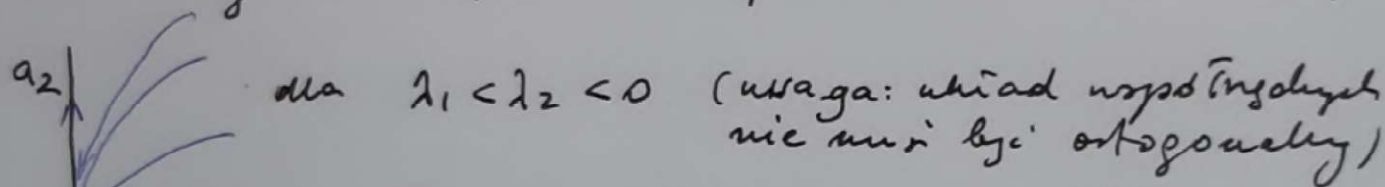 a₂ dla λ₁ < λ₂ < 0 (uwaga: układ współrzędnych
nie musi być ortogonalny)